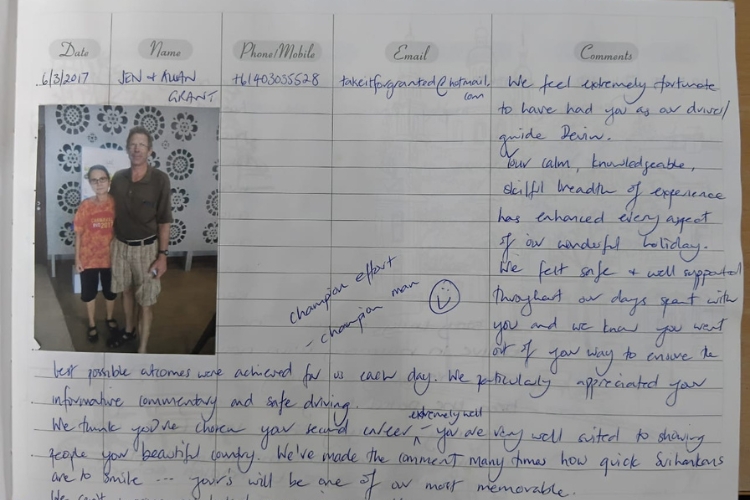 Date Name Phone/Mobile Email Comments
6/3/2017 JEN + ALLAN +61403055528 takeitforgranted@hotmail.
GRANT com
We feel extremely fortunate
to have had you as our driver/
guide Devin.
Your calm, knowledgeable,
skilful breadth of experience
has enhanced every aspect
of our wonderful holiday.
We felt safe + well supported
throughout our days spent with
you and we know you went
out of your way to ensure the
champion effort
- champion man
best possible outcomes were achieved for us each day. We particularly appreciated your
informative commentary and safe driving.
extremely well
We think you've chosen your second career - you are very well suited to sharing
people your beautiful country. We've made the comment many times how quick Sri Lankans
are to smile ... your's will be one of our most memorable.